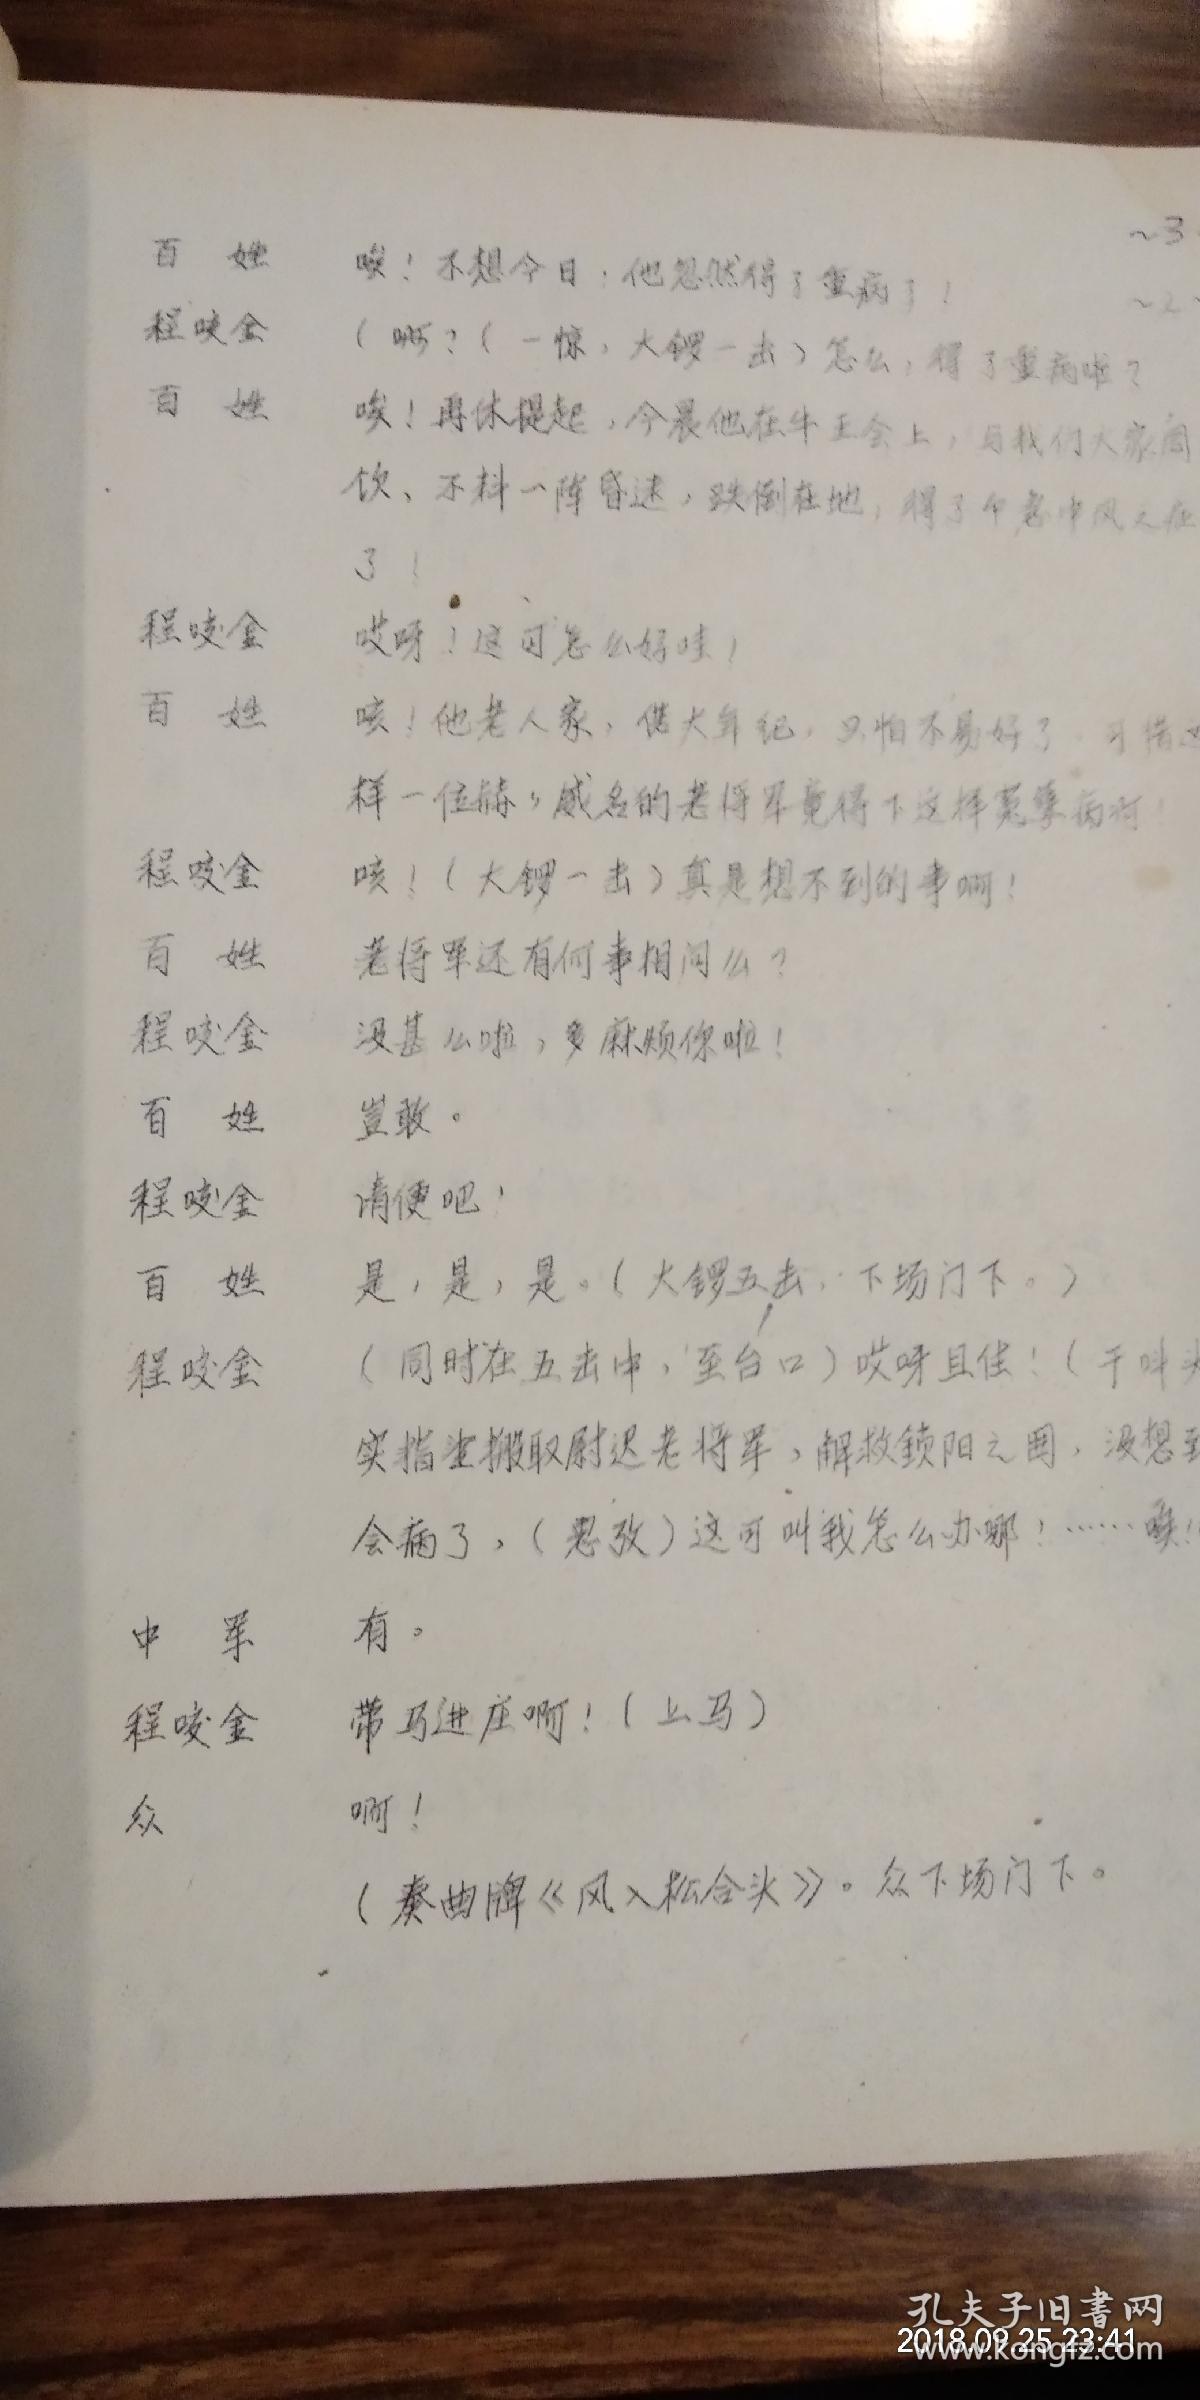 ~3
~2
百 姓 唉！不想今日，他忽然得了重病了！
程咬金 （啊？（一惊，大锣一击）怎么，得了重病啦？
百 姓 唉！再休提起，今晨他在牛王会上，与我们大家同
饮、不料一阵昏迷，跌倒在地，得了个老中风之症
了！
程咬金 哎呀！这可怎么好哇！
百 姓 咳！他老人家，偌大年纪，只怕不易好了，可惜这
样一位赫々威名的老将军竟得下这样冤孽病呵！
程咬金 咳！（大锣一击）真是想不到的事啊！
百 姓 老将军还有何事相问么？
程咬金 没甚么啦，多麻烦你啦！
百 姓 岂敢。
程咬金 请便吧！
百 姓 是，是，是。（大锣五击，下场门下。）
程咬金 （同时在五击中，至台口）哎呀且住！（
实指望搬取尉迟老将军，解救锁阳之围，没想到
会病了，（思孜）这可叫我怎么办哪！……唉！
中 军 有。
程咬金 带马进庄啊！（上马）
众 啊！
（奏曲牌《风入松合头》。众下场门下。
孔夫子旧书网
2018.09.25 23:41
www.kongfz.com